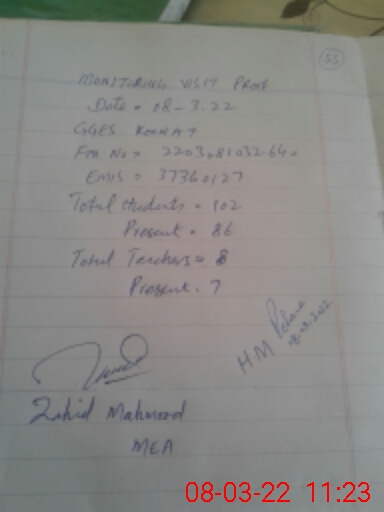 55
MONITORING VISIT PROF
Date = 08-3.22
GGES
FM No =
EMIS = 37360127
Total students = 102
Present = 86
Total Teachers = 8
Present. 7
HM
Zahid Mahmood
MEA
08-03-22 11:23